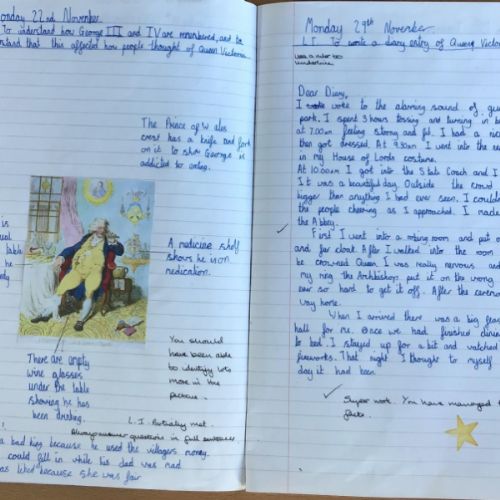 Monday 22nd November
To understand how George III and IV are remembered, and to
understand that this affected how people thought of Queen Victoria
The Prince of Wales
crest has a knife and fork
on it to show George is
addicted to eating.
is
table
he
A medicine shelf
shows he is on
medication.
There are empty
wine glasses
under the table
showing he has
been drinking.
You should
have been able
to identify lots
more in the
picture.
L.I. Partially met.
Always answer questions in full sentences
a bad king because he used the villagers money.
could fill in while his dad was mad
was liked because she was fair
Monday 29th November
L.I. To write a diary entry of Queen Victoria
Use a ruler to
underline
Dear Diary,
I woke to the alarming sound of
park. I spent 3 hours tossing and turning in
at 7.00am feeling strong and fit. I had a
then got dressed. At 9.30am I went into the
in my House of Lords costume.
At 10.00am I got into the State Coach and I
It was a beautiful day. Outside the crowd
bigger than anything I had ever seen. I could
the people cheering as I approached. I made
the Abbey.
First I went into a robing room and put
and fur cloak. After I walked into the room
be crowned Queen. I was really nervous and
my ring the Archbishop put it on the wrong
was so hard to get it off. After the
way home.
When I arrived there was a big
hall for me. Once we had finished
to bed. I stayed up for a bit and watched
fireworks. That night I thought to myself
day it had been.
Super work. You have managed
facts.